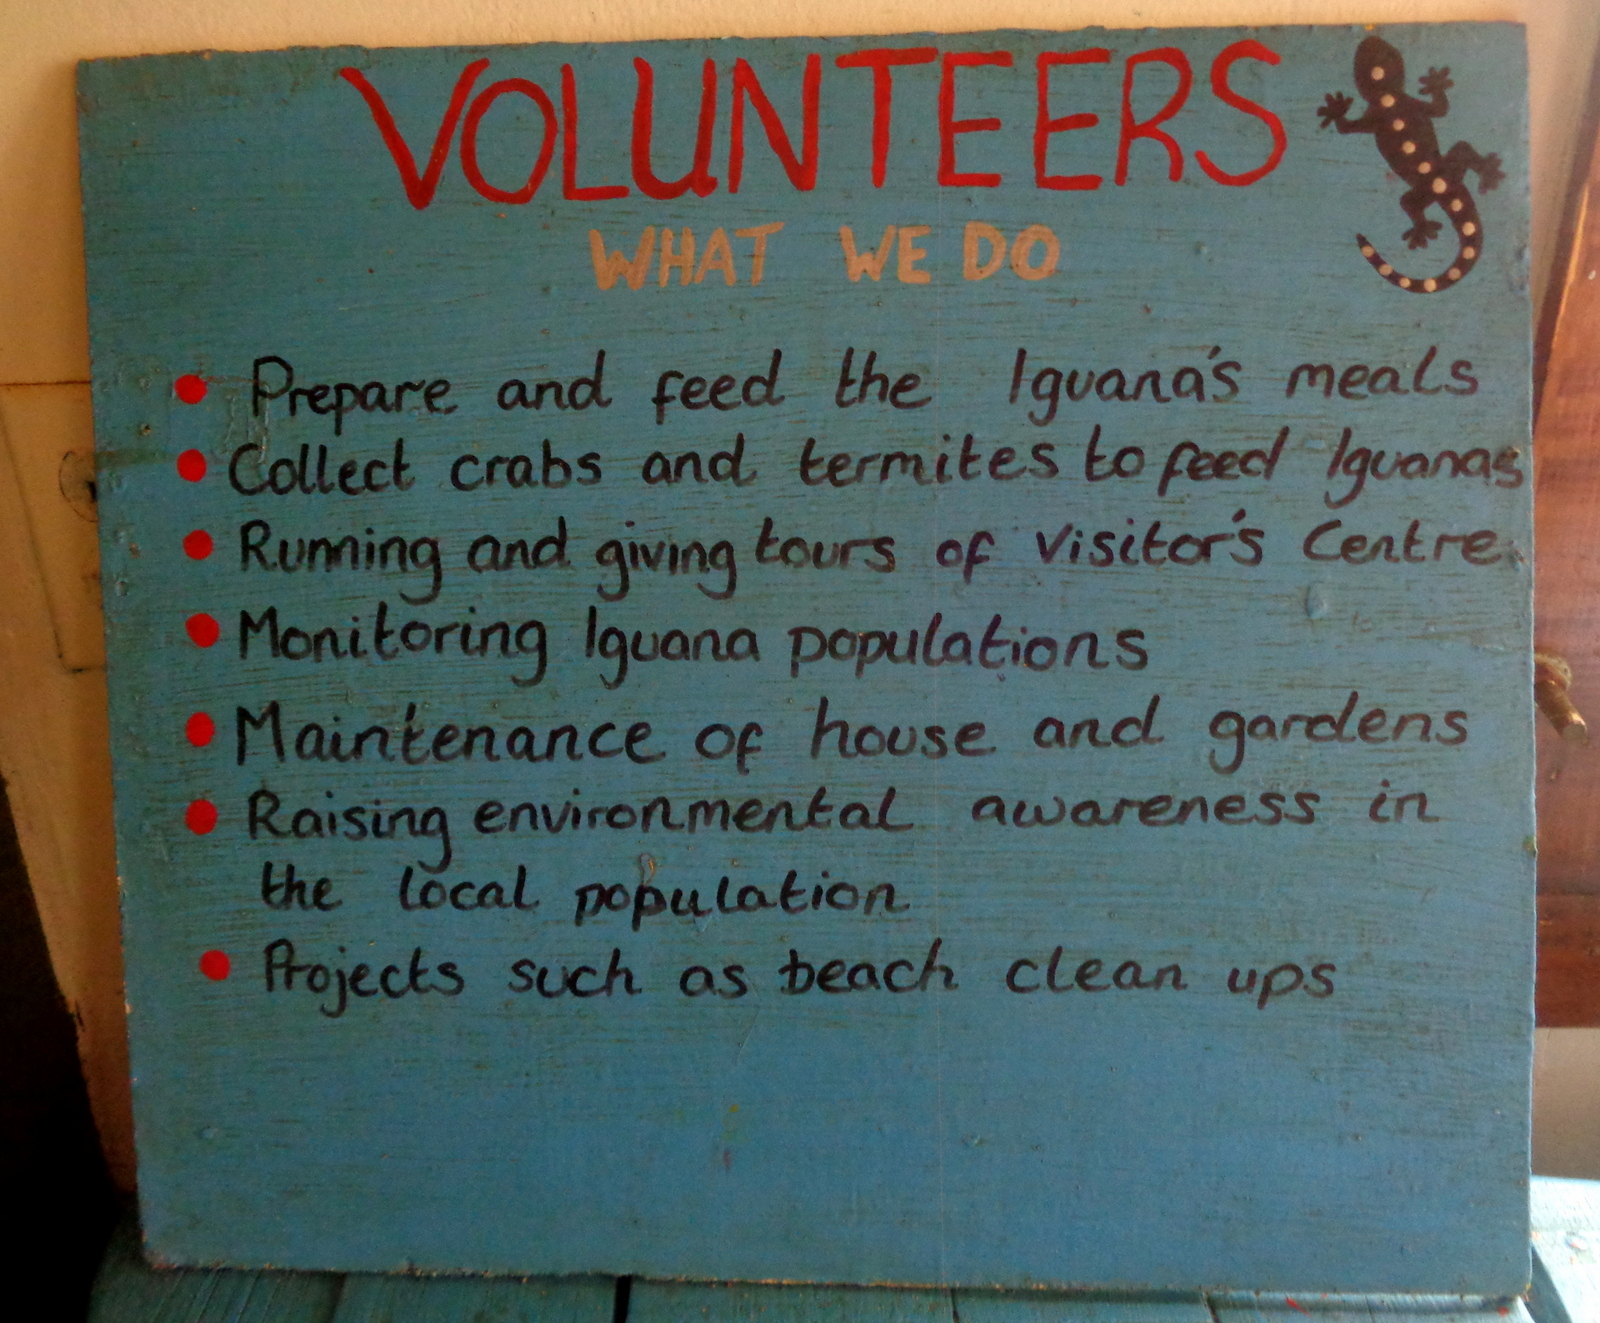 VOLUNTEERS
WHAT WE DO
Prepare and feed the Iguana's meals
Collect crabs and termites to feed Iguanas
Running and giving tours of Visitor's Centre
Monitoring Iguana populations
Maintenance of house and gardens
Raising environmental awareness in
the local population
Projects such as beach clean ups